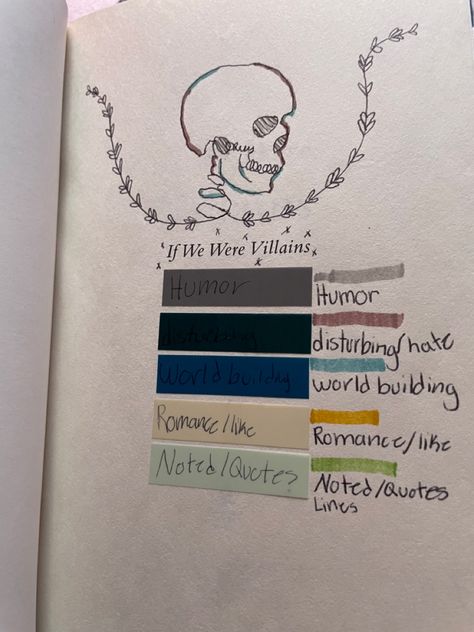 If We Were Villains
Humor
Humor
disturbing
disturbing/hate
World building
world building
Romance/like
Romance/like
Noted/Quotes
Noted/Quotes
Lines